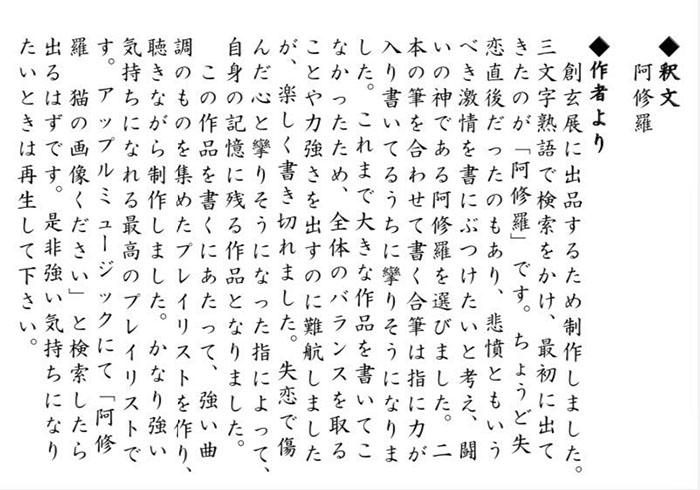 ◆釈文
阿修羅
◆作者より
創玄展に出品するため制作しました。
三文字熟語で検索をかけ、最初に出て
きたのが「阿修羅」です。ちょうど失
恋直後だったのもあり、悲憤ともいう
べき激情を書にぶつけたいと考え、闘
いの神である阿修羅を選びました。二
本の筆を合わせて書く合筆は指に力が
入り書いてるうちに攣りそうになりま
した。これまで大きな作品を書いてこ
なかったため、全体のバランスを取る
ことや力強さを出すのに難航しました
が、楽しく書き切れました。失恋で傷
んだ心と攣りそうになった指によって、
自身の記憶に残る作品となりました。
この作品を書くにあたって、強い曲
調のものを集めたプレイリストを作り、
聴きながら制作しました。かなり強い
気持ちになれる最高のプレイリストで
す。アップルミュージックにて「阿修
羅 猫の画像ください」と検索したら
出るはずです。是非強い気持ちになり
たいときは再生して下さい。